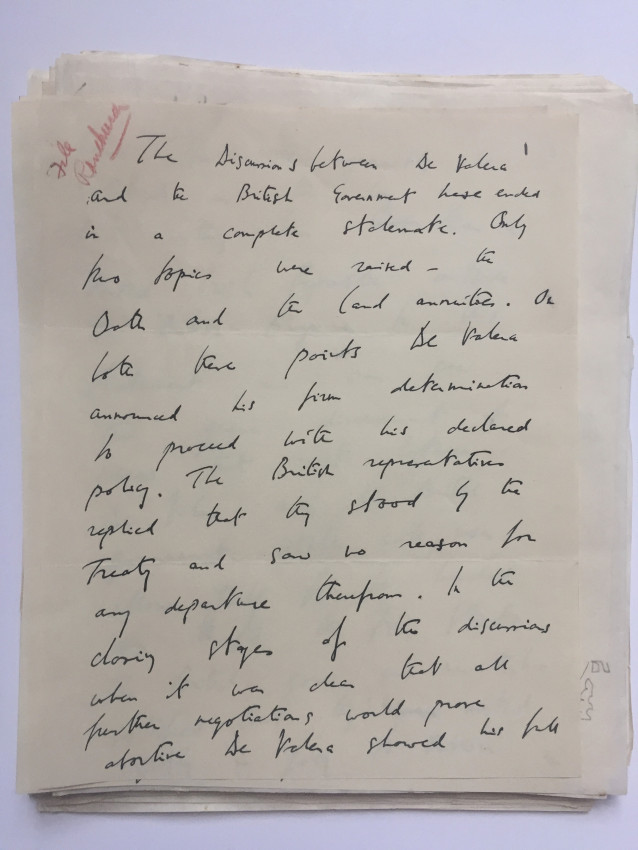 File
The Discussions between De Valera
and the British Government have ended
in a complete stalemate. Only
two topics were raised – the
Oath and the land annuities. On
both these points De Valera
announced his firm determination
to proceed with his declared
policy. The British representatives
replied that they stood by the
Treaty and saw no reason for
any departure therefrom. In the
closing stages of the discussions
when it was clear that all
further negotiations would prove
abortive De Valera showed his full